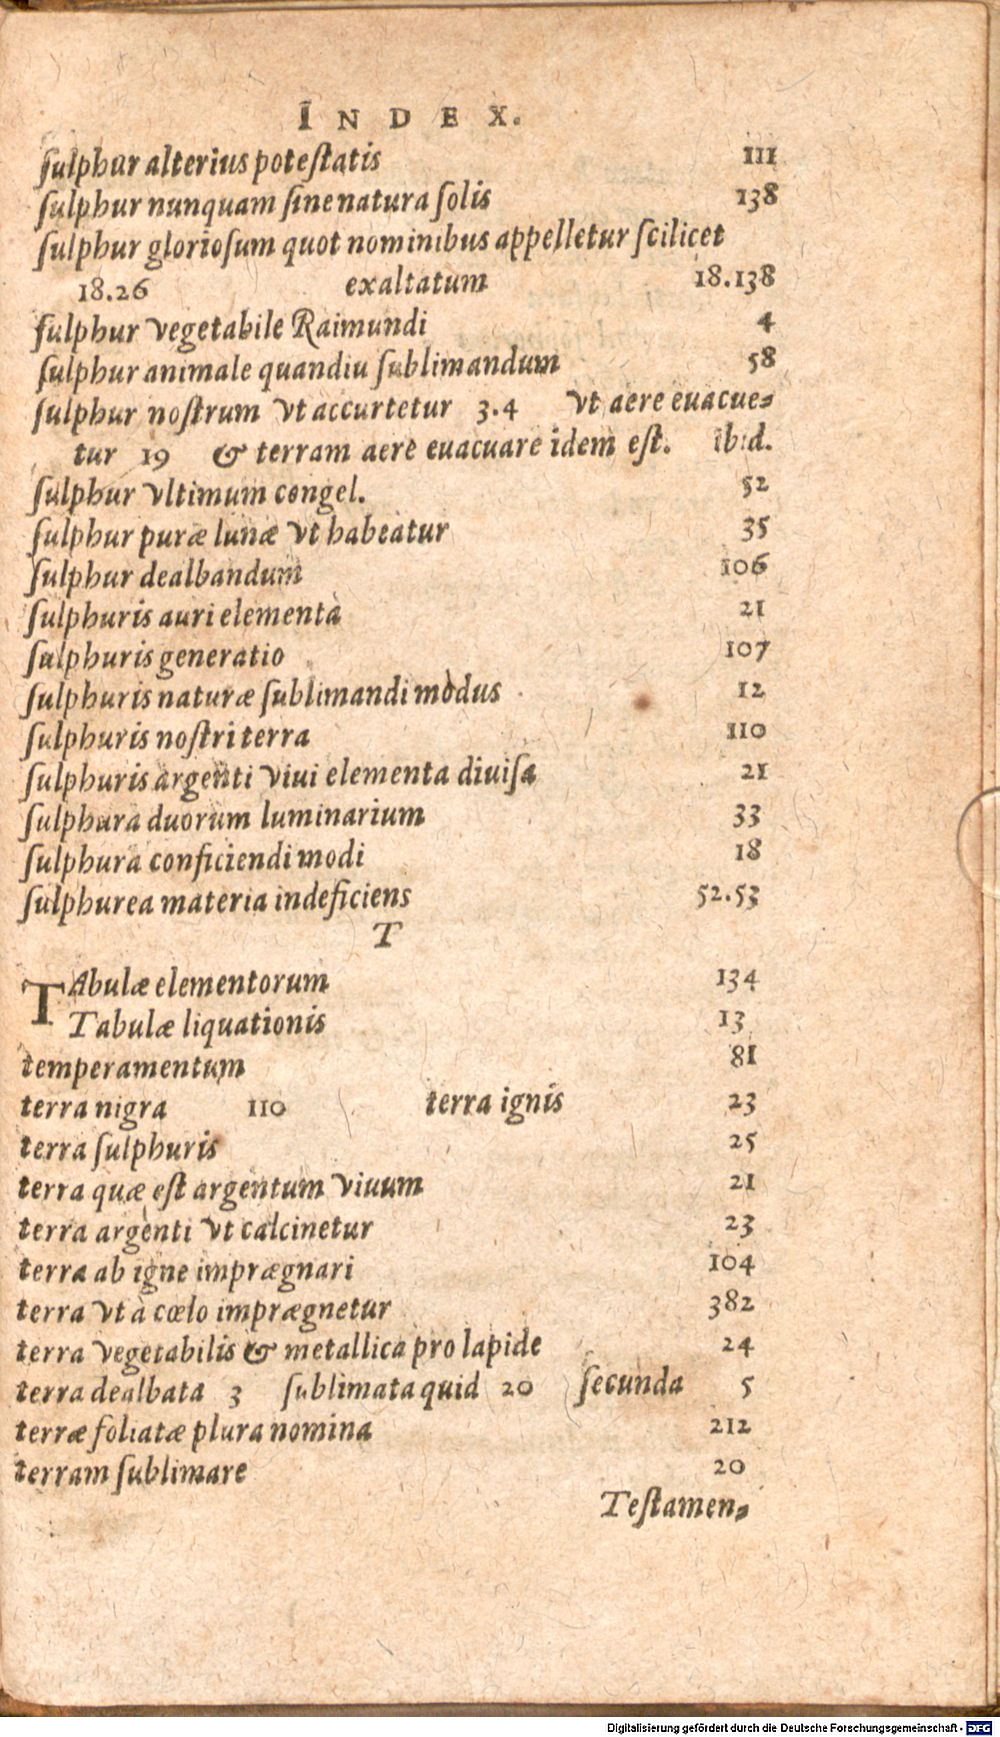 INDEX.
ſulphur alterius poteſtatis 111
ſulphur nunquam ſine natura ſolis 138
ſulphur glorioſum quot nominibus appelletur ſcilicet
18.26 exaltatum 18.138
ſulphur vegetabile Raimundi 4
ſulphur animale quandiu ſublimandum 58
ſulphur noſtrum vt accurtetur 3.4 vt aere euacue-
tur 19 & terram aere euacuare idem eſt. ibid.
ſulphur vltimum congel. 52
ſulphur puræ lunæ vt habeatur 35
ſulphur dealbandum 106
ſulphuris auri elementa 21
ſulphuris generatio 107
ſulphuris naturæ ſublimandi modus 12
ſulphuris noſtri terra 110
ſulphuris argenti viui elementa diuiſa 21
ſulphura duorum luminarium 33
ſulphura conficiendi modi 18
ſulphurea materia indeficiens 52.53
T
TAbulæ elementorum 134
Tabulæ liquationis 13
temperamentum 81
terra nigra 110 terra ignis 23
terra ſulphuris 25
terra quæ eſt argentum viuum 21
terra argenti vt calcinetur 23
terra ab igne imprægnari 104
terra vt à cœlo imprægnetur 382
terra vegetabilis & metallica pro lapide 24
terra dealbata 3 ſublimata quid 20 ſecunda 5
terræ foliatæ plura nomina 212
terram ſublimare 20
Teſtamen-
Digitalisierung gefördert durch die Deutsche Forschungsgemeinschaft - DFG